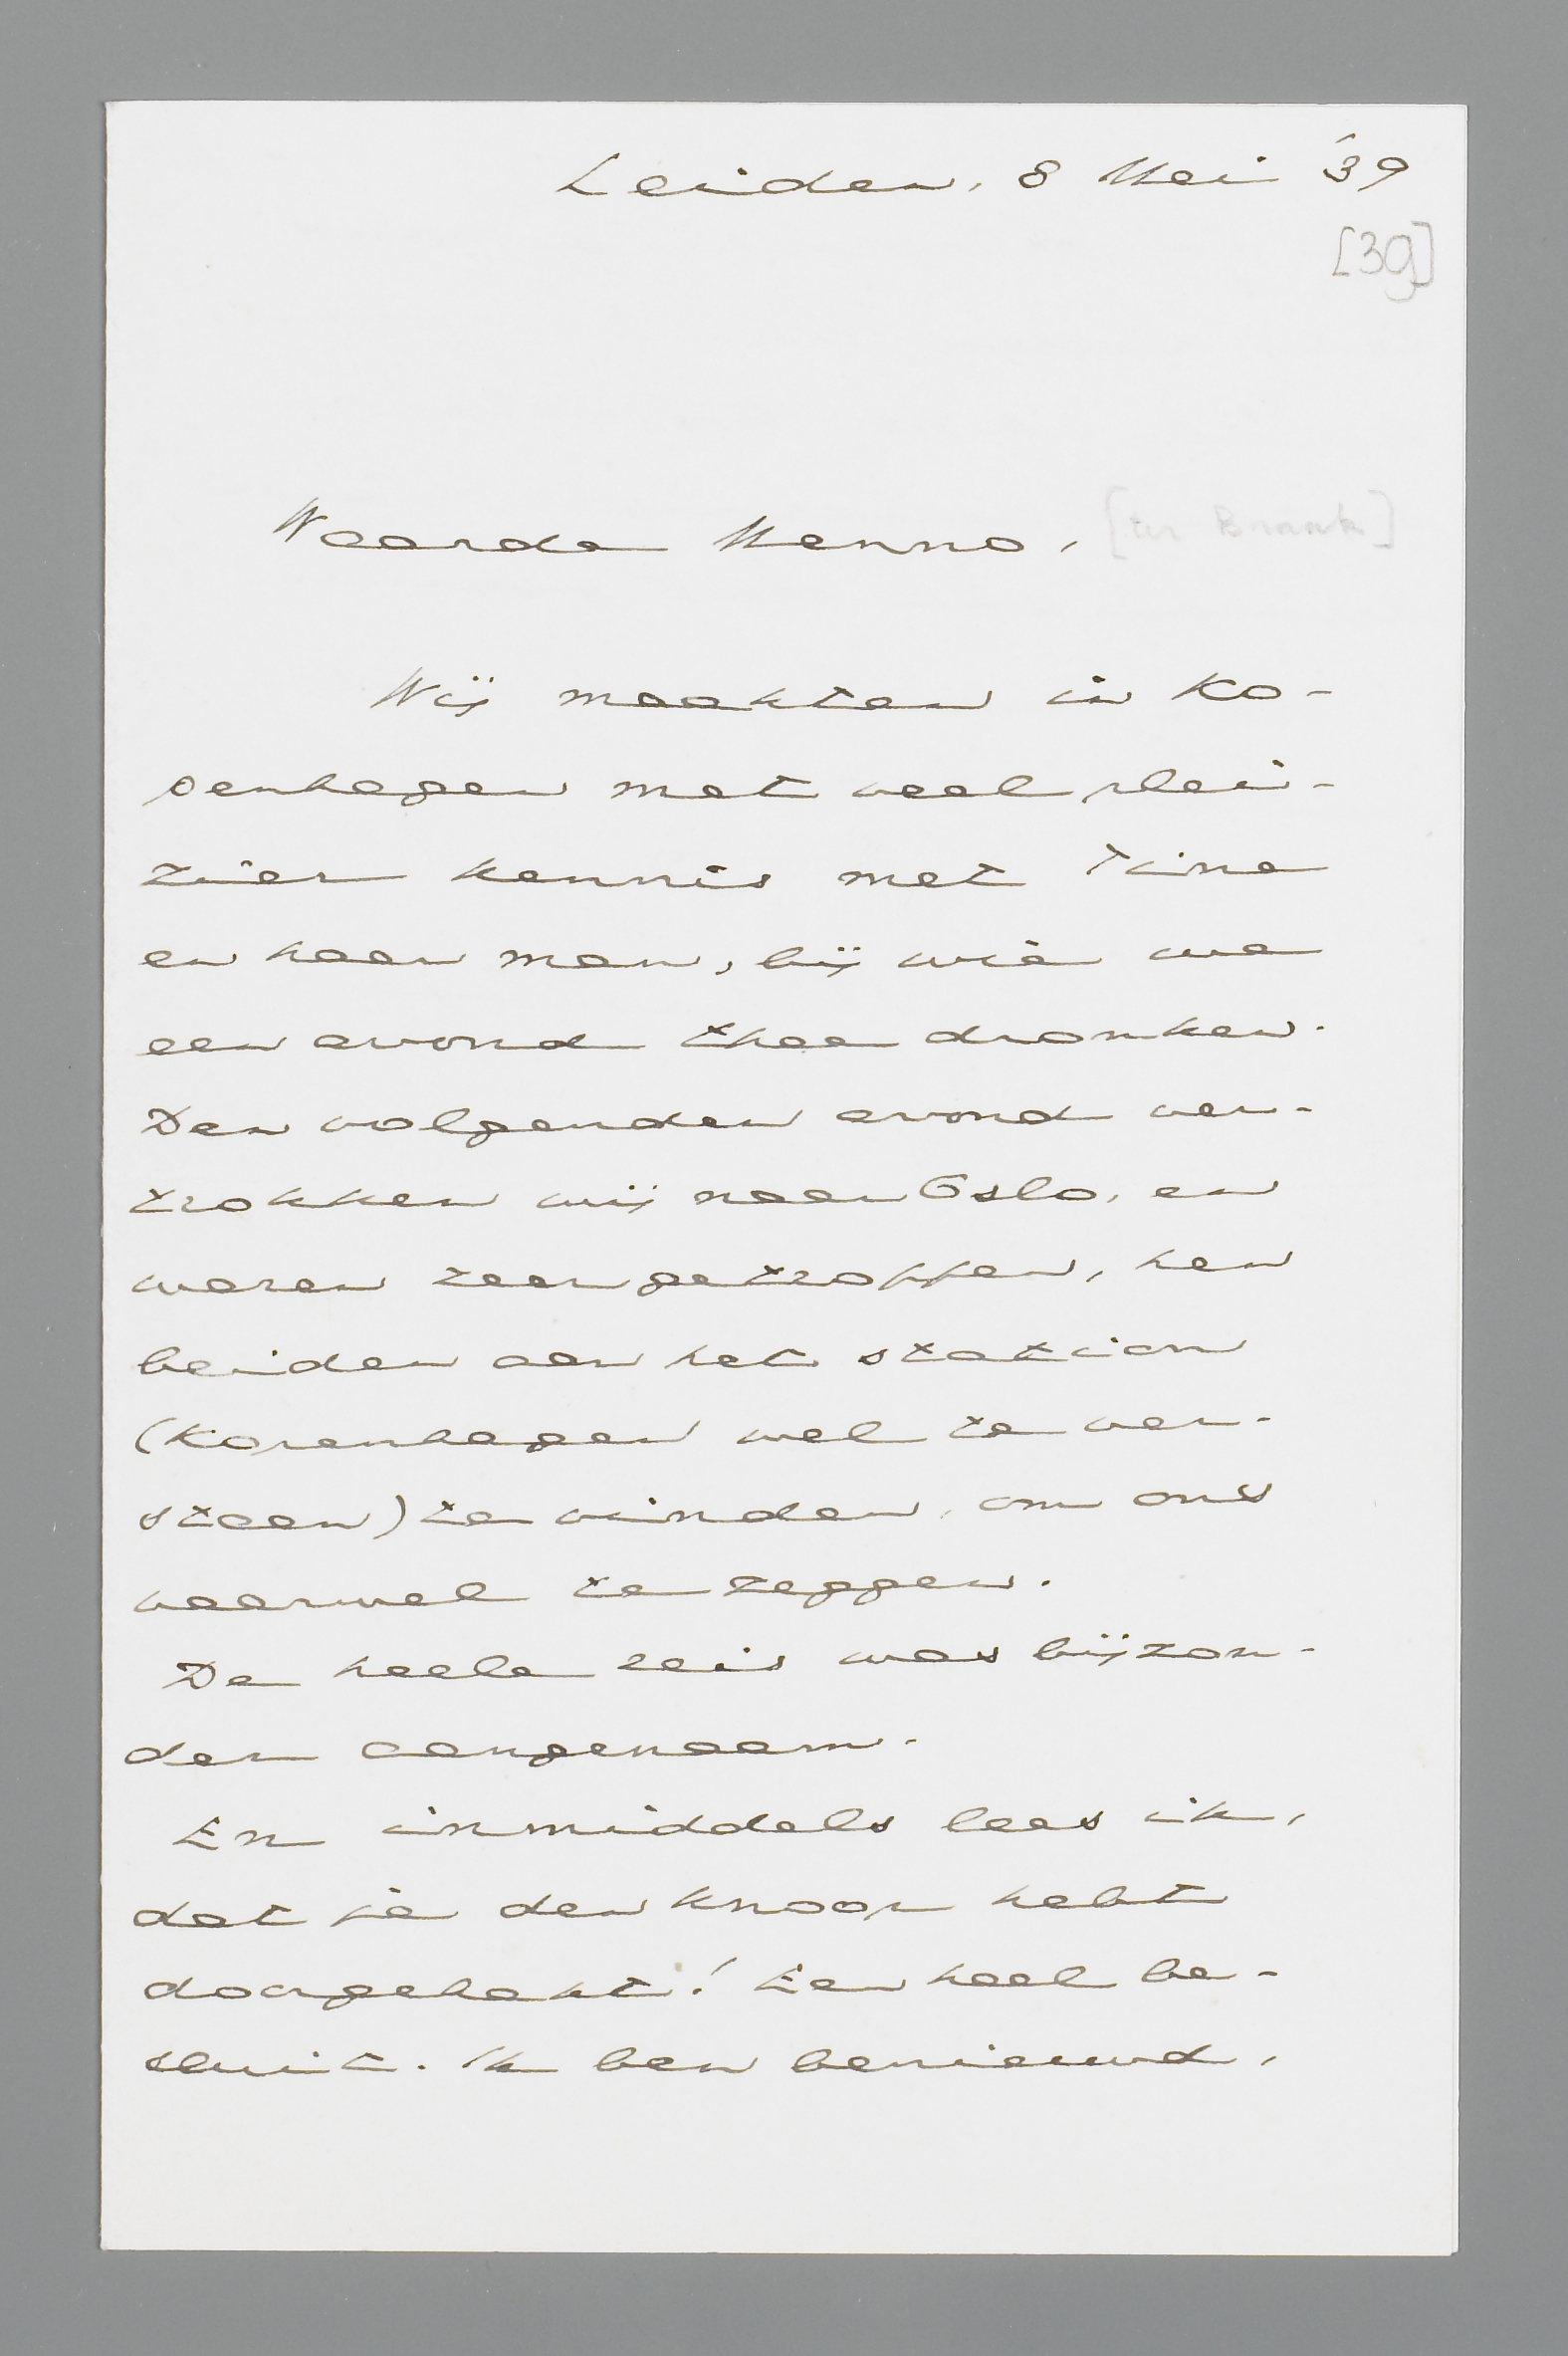 Leiden, 8 Mei '39
[39]
Waarde Menno, [ter Braak]
Wij maakten in Ko-
penhagen met veel plei-
zier kennis met Tine
en haar man, bij wie we
een avond thee dronken.
Den volgenden avond ver-
trokken wij naar Oslo, en
waren zeer getroffen, hen
beiden aan het station
(Kopenhagen wel te ver-
staan) te vinden, om ons
vaarwel te zeggen.
De heele reis was bijzon-
der aangenaam.
En inmiddels lees ik,
dat je den knoop hebt
doorgehakt! Een heel be-
sluit. Ik ben benieuwd,